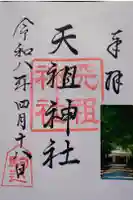 奉拝
天祖神社
天祖
神社
令和八年四月十八日